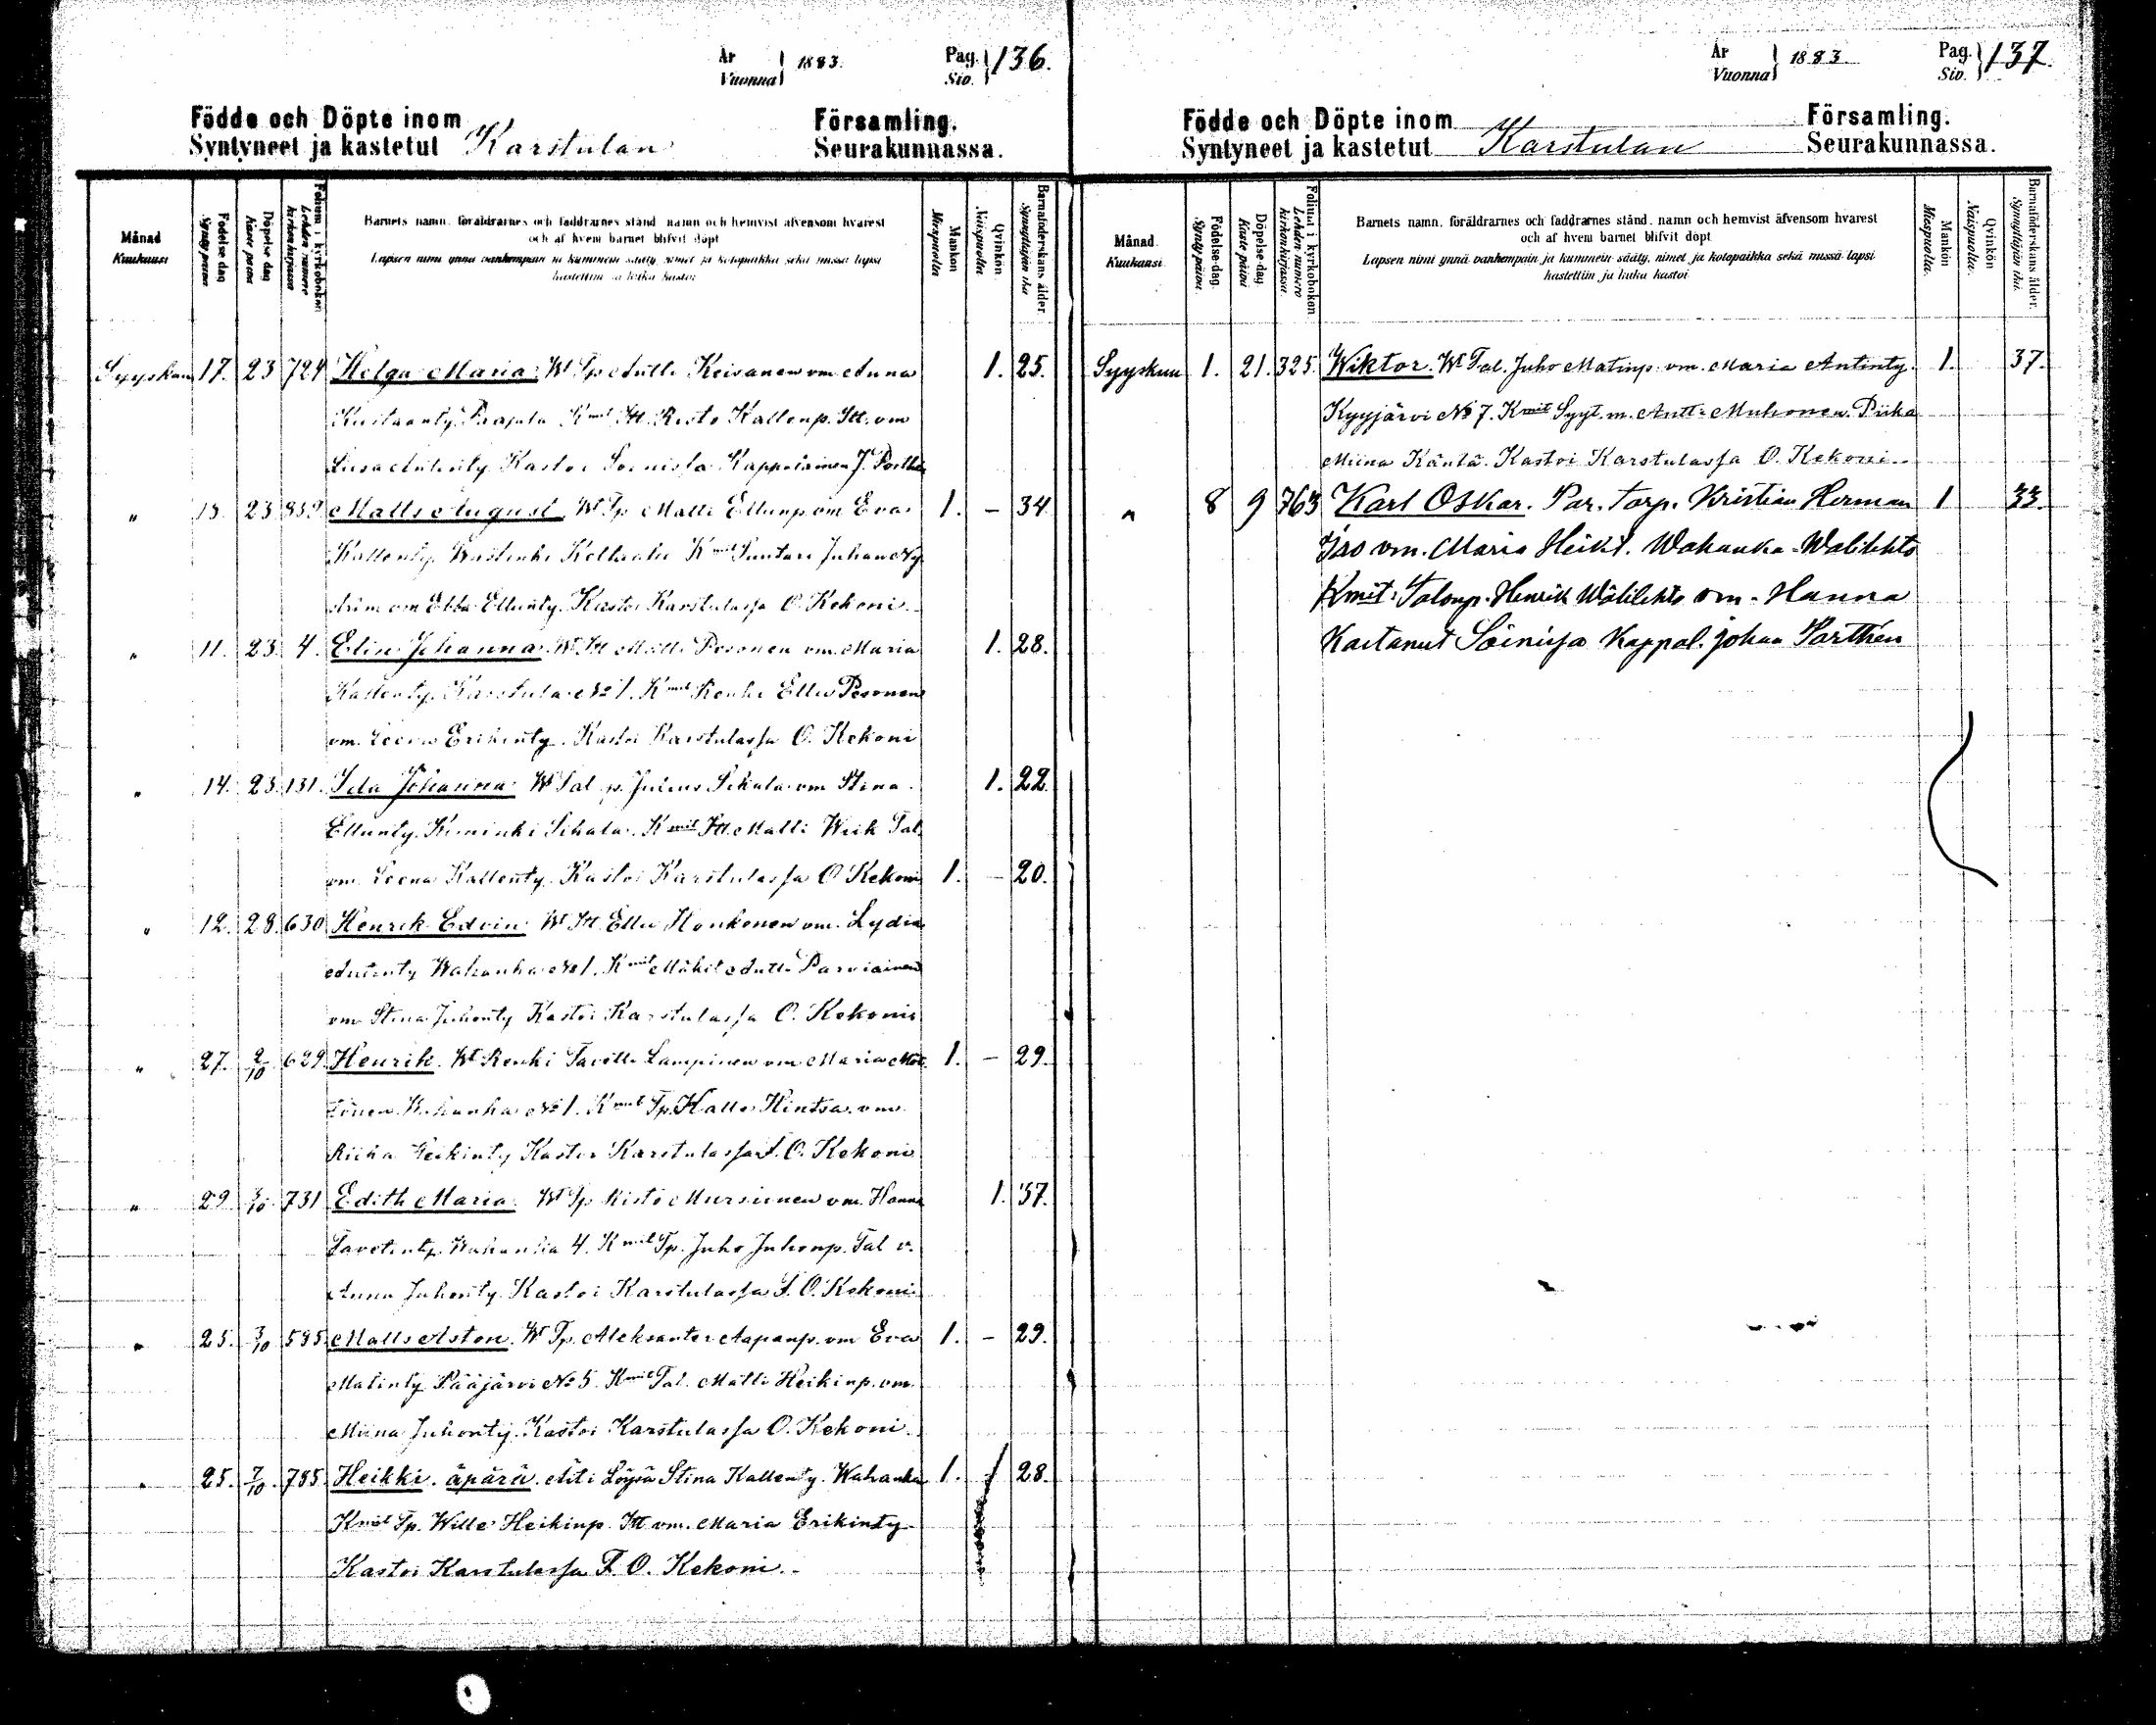 År
Vuonna 1883.
Pag.
Siv. 136.
Födde och Döpte inom Församling.
Syntyneet ja kastetut Karstulan Seurakunnassa.
Månad
Kuukausi
Födelse dag
Synty päivä
Döpelse dag
Kaste päivä
Folium i kyrkoboken
Lehden numero kirkonkirjassa
Barnets namn, föräldrarnes och faddrarnes stånd, namn och hemvist äfvensom hvarest
och af hvem barnet blifvit döpt
Lapsen nimi ynnä vanhempain ja kummein sääty, nimet ja kotopaikka sekä missä lapsi
kastettiin ja kuka kastoi
Mankön
Miespuolta
Qvinkön
Naispuolta
Barnaföderskans ålder.
Synnyttäjän ikä
Syyskuu 17. 23 724 Helga Maria. Wt Tp Antti Keisanen vm. Anna 1. 25.
Kmit Itt. Risto Kallenp. Itt. vm
Liisa Antinty. Kastoi Soinissa Kappalainen J. Porthén
" 13. 23 839 Matts August. Wt Tp Matti Ellunp vm Eva 1. – 34
Kallenty. Kmit Suutari Juha Ny-
ström vm Ebba Ellunty. Kastoi Karstulassa O. Kekoni.
" 11. 23. 4. Elin Johanna. Wt Itt Matti Pesonen vm. Maria 1. 28.
Kallenty. Karstula No 1. Kmit Renki Ellu Pesonen
vm. Leena Erikinty. Kastoi Karstulassa O. Kekoni
" 14. 23. 131. Ida Johanna. Wt Tal. p. Julius Sihala vm Stina 1. 22.
Ellunty. Kiminki Sihala. Kmit Itt. Matti Weik Tal.
vm. Leena Kallenty. Kastoi Karstulassa O Kekoni 1. – 20.
" 12. 28. 630 Henrik Edvin. Wt Itt. Ellu Honkonen vm. Lydia
Antinty Wahanka No 1. Kmit Mäkit Antti Parviainen
vm Stina Juhonty Kastoi Karstulassa O. Kekoni
" 27. 2/10 629. Henrik. Wt Renki Taavetti Lampinen vm Maria 1. – 29.
Wahanka No 1. Kmit Tp. Kalle Hintsa. vm
Riika Heikinty Kastoi Karstulassa F. O. Kekoni
" 29 3/10. 731 Edith Maria. Wt Tp Risto Mursunen vm. Hanna 1. 37.
Tavetinty. Wahanka 4. Kmit Tp. Juho Juhonp. Tal v.
Anna Juhonty. Kastoi Karstulassa F. O. Kekoni.
" 25. 3/10 595. Matts Aston. Wt Tp. Aleksanter Aapanp. vm Eva 1. – 29.
Matinty Pääjärvi No 5. Kmit Tal. Matti Heikinp. vm.
Miina Juhonty. Kastoi Karstulassa O. Kekoni.
" 25. 7/10. 795. Heikki. äpärä. Äiti Löysä Stina Kallenty. Wahanka 1. 28.
Kmit Tp. Wille Heikinp. Itt. vm. Maria Erikinty
Kastoi Karstulassa F. O. Kekoni.
År
Vuonna 1883.
Pag.
Siv. 137.
Födde och Döpte inom Församling.
Syntyneet ja kastetut Karstulan Seurakunnassa.
Månad.
Kuukausi
Födelse-dag.
Synty päivä.
Döpelse-dag
Kaste päivä
Folium i kyrkoboken
Lehden numero kirkonkirjassa
Barnets namn, föräldrarnes och faddrarnes stånd, namn och hemvist äfvensom hvarest
och af hvem barnet blifvit döpt
Lapsen nimi ynnä vanhempain ja kummein sääty, nimet ja kotopaikka sekä missä lapsi
kastettiin ja kuka kastoi
Mankön
Miespuolta.
Qvinkön
Naispuolta.
Barnaföderskans ålder.
Synnyttäjän ikä.
Syyskuu 1. 21. 325. Wiktor. Wt Tal. Juho Matinp. vm. Maria Antinty. 1. 37.
Kyyjärvi No 7. Kmit Syyt. m. Antti Muhonen. Piika
Miina Käntä. Kastoi Karstulassa O. Kekoni.
" 8 9 763 Karl Oskar. Par. Torp. Kristian Herman 1 33.
Iso vm. Maria Heikt. Wahanka-Walilehto
Kmit: Talonp. Henrik Wälilehto vm. Hanna
Kastanut Soinissa Kappal. Johan Porthén